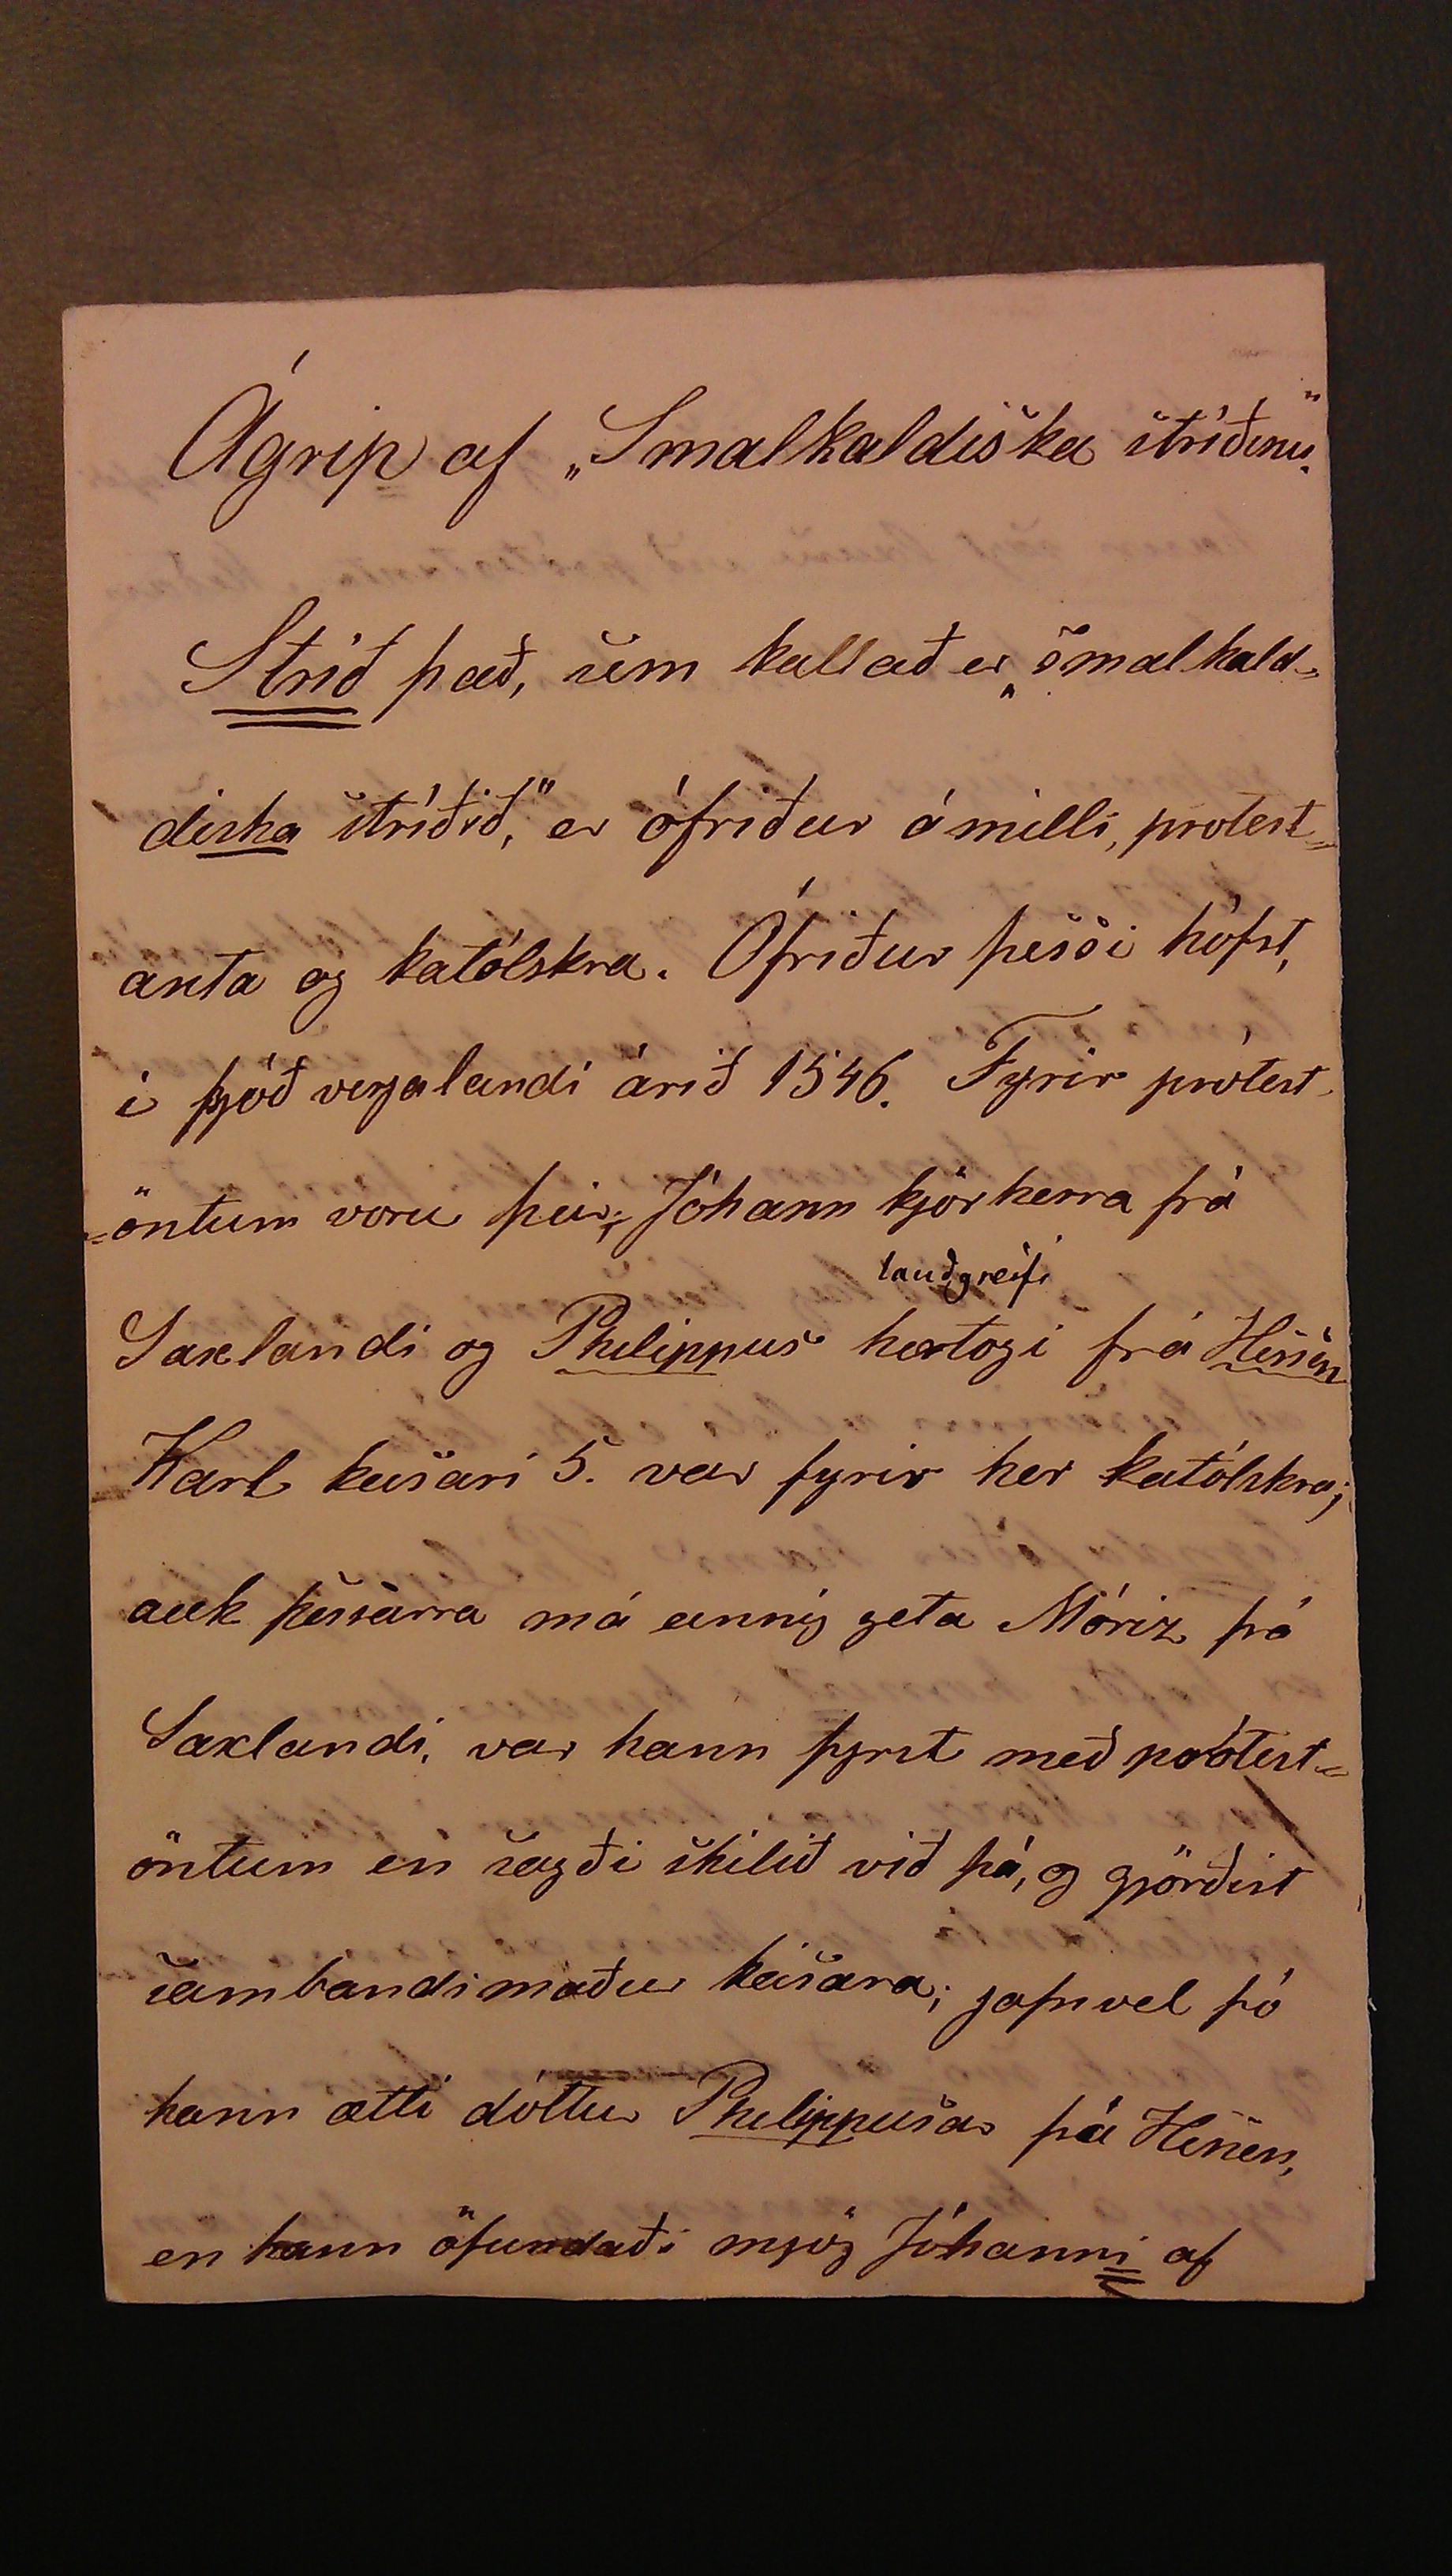 Ágrip af „Smalkaldiska stríðinu."
Stríð það, sem kallað er „smalkald-
diska stríðið," er ófriður á milli, prótest-
anta og katólskra. Ófriður þessi hófst,
i þjóðverjalandi árið 1546. Fyrir prótest-
-öntum voru þeir; Jóhann kjörherra frá
landgreifi
Saxlandi og Philippus hertogi frá Hessen
Karl keisari 5. var fyrir her katólskra;
auk þessarra má einnig geta Móriz frá
Saxlandi, var hann fyrst með prótest-
öntum en sagði skilið við þá, og gjörðist
sambandsmaður keisara; jafnvel þó
hann ætti dóttur Philippusar frá Hessen,
en hann öfundaði mjög Jóhanni af